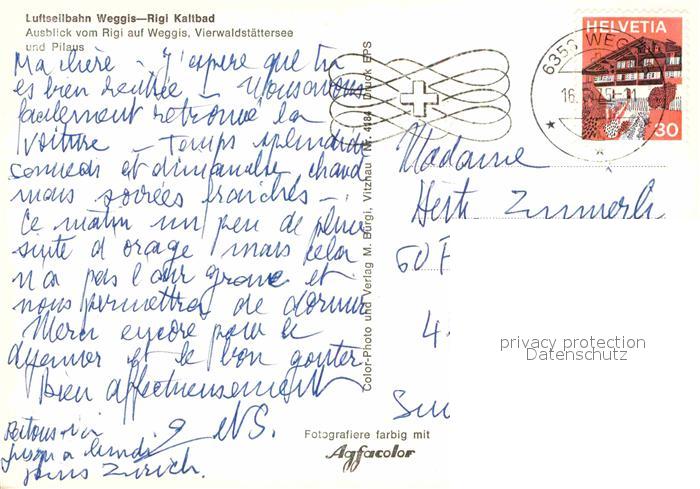 Luftseilbahn Weggis—Rigi Kaltbad
Ausblick vom Rigi auf Weggis, Vierwaldstättersee
und Pilaus
Ma chère - J'espère que tu
es bien rentrée - Nous avons
facilement retrouvé la
voiture - temps splendide
samedi et dimanche chaud
mais soirées fraiches -
Ce matin un peu de pluie
suite d'orage mais cela
n'a pas l'air grave et
nous permettra de dormir
Merci encore pour le
déjeuner et le bon gouter
Bien affectueusement
NS.
jusqu'a lundi
Zürich.
Color-Photo und Verlag M. Bürgi, Vitznau Nr. 4184 Druck EPS
HELVETIA
30
6353 WEG
16.
Madame
Zimmerli
60 F
4
privacy protection
Datenschutz
Fotografiere farbig mit
Agfacolor